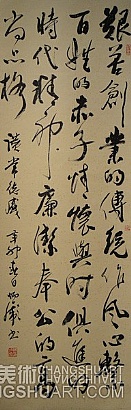 艱苦創業的傳統作風心繫
百姓的赤子情懷與時俱進的
時代精神廉潔奉公的高
尚品格
讀常德盛
辛卯春日
書
CHANGSHUART